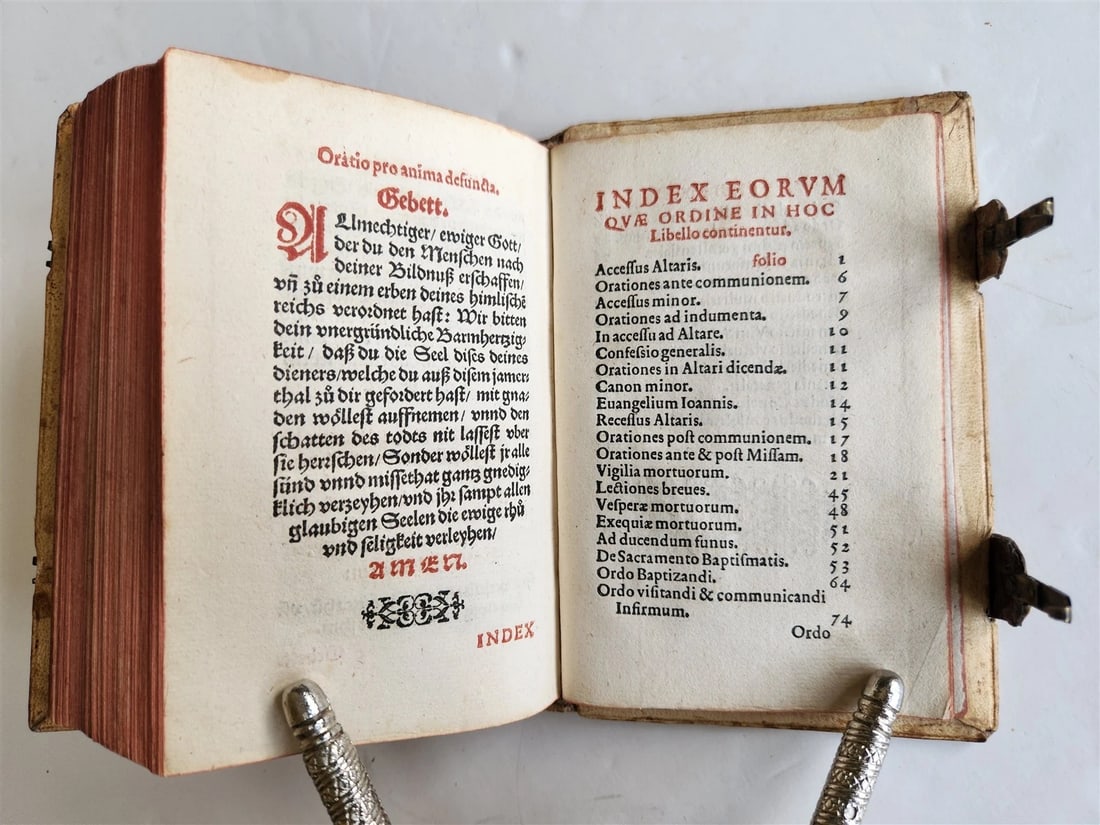 Oratio pro anima defuncta.
Gebett.
Allmechtiger/ ewiger Gott/
der du den Menschen nach
deiner Bildnuß erschaffen/
vñ zů einem erben deines himlischẽ
reichs verordnet hast: Wir bitten
dein vnergründliche Barmhertzig⸗
keit/ daß du die Seel dises deines
dieners/welche du auß disem jamer⸗
thal zů dir gefordert hast/ mit gna⸗
den wöllest auffnemen/ vnnd den
schatten des todts nit lassest vber
sie herrschen/ Sonder wöllest jr alle
sünd vnnd missethat gantz gnedig⸗
klich verzeyhen/vnd jhr sampt allen
glaubigen Seelen die ewige rhů
vnd seligkeit verleyhen/
AMEN.
INDEX
INDEX EORVM
QVÆ ORDINE IN HOC
Libello continentur.
Accessus Altaris. folio 1
Orationes ante communionem. 6
Accessus minor. 7
Orationes ad indumenta. 9
In accessu ad Altare. 10
Confessio generalis. 11
Orationes in Altari dicendæ. 11
Canon minor. 12
Euangelium Ioannis. 14
Recessus Altaris. 15
Orationes post communionem. 17
Orationes ante & post Missam. 18
Vigilia mortuorum. 21
Lectiones breues. 45
Vesperæ mortuorum. 48
Exequiæ mortuorum. 51
Ad ducendum funus. 52
De Sacramento Baptismatis. 53
Ordo Baptizandi. 64
Ordo visitandi & communicandi
Infirmum. 74
Ordo